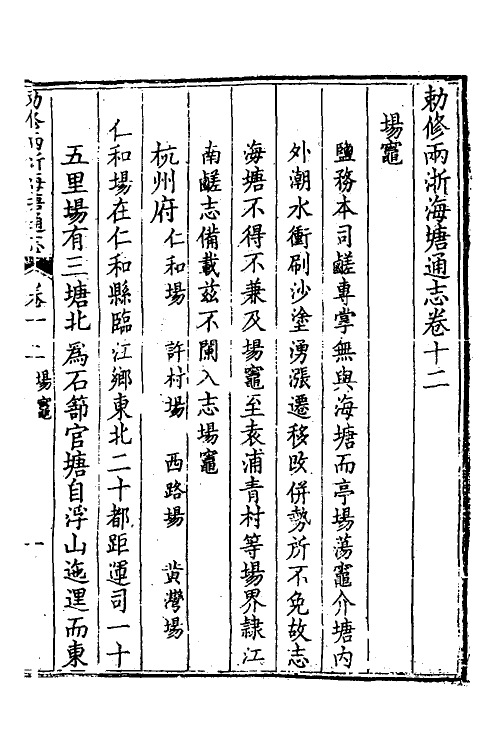 勅修兩浙海塘通志卷十二
場竈
鹽務本司鹺專掌無與海塘而亭場蕩竈介塘内
外潮水衝刷沙塗湧漲遷移改併勢所不免故志
海塘不得不兼及場竈至袁浦青村等場界隷江
南鹺志備載兹不闌入志場竈
杭州府 仁和場 許村場 西路場 黄灣場
仁和場在仁和縣臨江鄉東北二十都距運司一十
五里場有三塘北爲石篰官塘自浮山迤逦而東
勅修兩浙海塘通志 卷十二 場竈 一